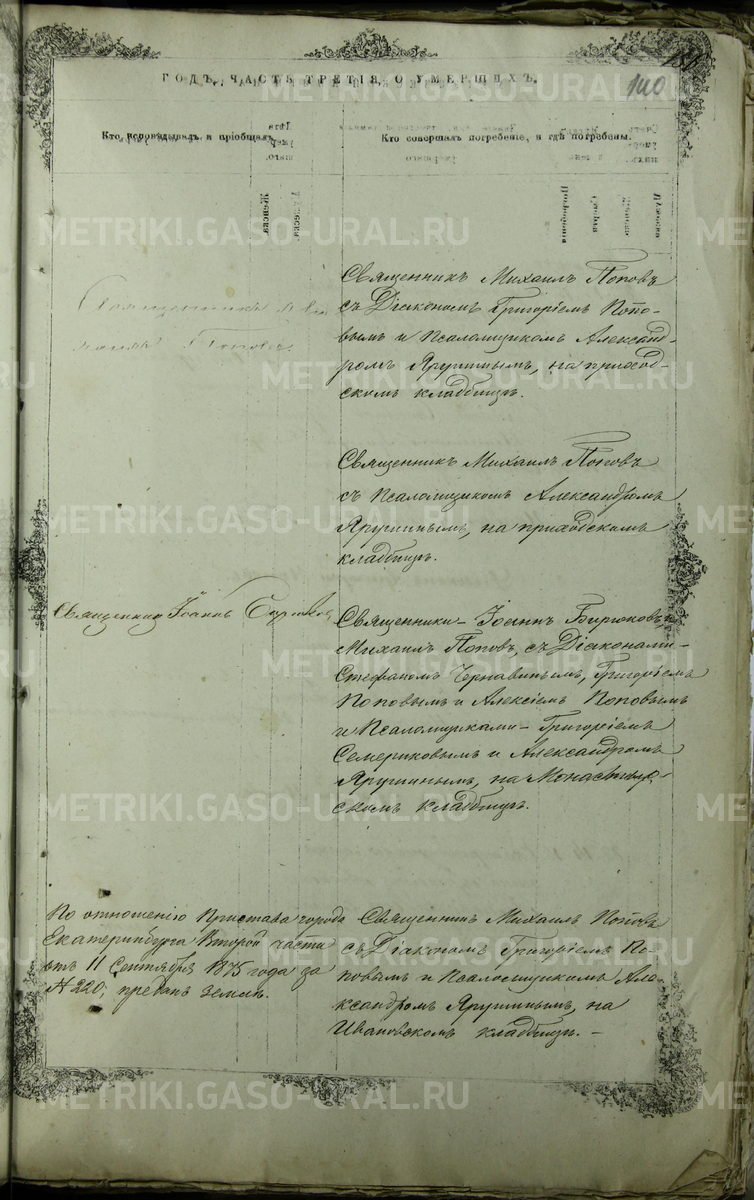 140
ГОДЪ, ЧАСТЬ ТРЕТІЯ, О УМЕРШИХЪ.
Кто исповѣдывалъ и пріобщалъ.
Кто совершалъ погребеніе, и гдѣ погребены.
Священникъ
Поповъ.
Священникъ Михаилъ Поповъ
съ Діакономъ Григоріемъ Попо-
вымъ и Псаломщикомъ Александ-
ромъ Ярушинымъ, на приход-
скомъ кладбищѣ.
Священникъ Михаилъ Поповъ
съ Псаломщикомъ Александромъ
Ярушинымъ, на приходскомъ
кладбищѣ.
Священникъ Іоаннъ Бирюковъ
Священники Іоаннъ Бирюковъ,
Михаилъ Поповъ, съ Діаконами
Стефаномъ Чернавинымъ, Григоріемъ
Поповымъ и Алексіемъ Поповымъ
и Псаломщиками Григоріемъ
Семериковымъ и Александромъ
Ярушинымъ, на Монастыр-
скомъ кладбищѣ.
По отношенію Пристава города
Екатеринбурга Второй части
отъ 11 Сентября 1875 года за
№ 220, преданъ землѣ.
Священникъ Михаилъ Поповъ
съ Діакономъ Григоріемъ По-
повымъ и Псаломщикомъ Але-
ксандромъ Ярушинымъ, на
Ивановскомъ кладбищѣ. –
METRIKI.GASO-URAL.RU